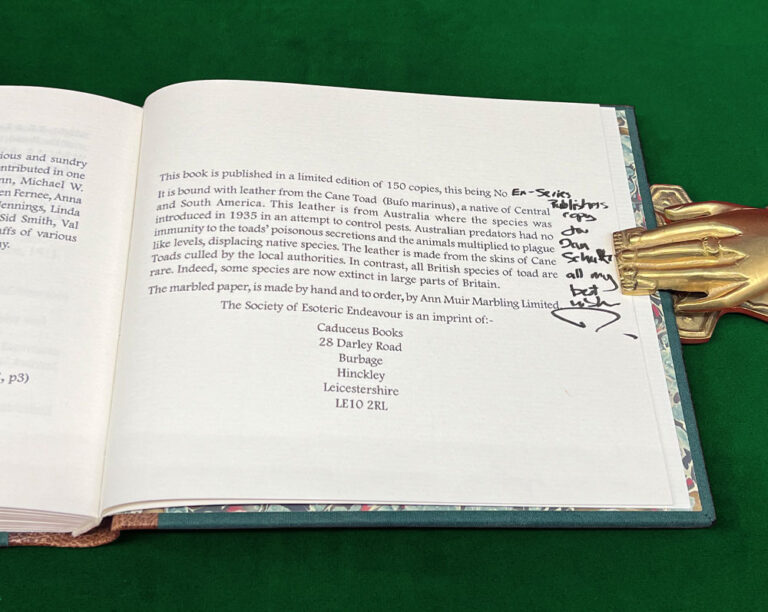 ious and sundry
ntributed in one
nn, Michael W.
en Fernee, Anna
Jennings, Linda
Sid Smith, Val
affs of various
y.
, p3)
This book is published in a limited edition of 150 copies, this being No Ex-Series
Publishers
copy
for
Dan
all my
best
wish
It is bound with leather from the Cane Toad (Bufo marinus), a native of Central
and South America. This leather is from Australia where the species was
introduced in 1935 in an attempt to control pests. Australian predators had no
immunity to the toads' poisonous secretions and the animals multiplied to plague
like levels, displacing native species. The leather is made from the skins of Cane
Toads culled by the local authorities. In contrast, all British species of toad are
rare. Indeed, some species are now extinct in large parts of Britain.
The marbled paper, is made by hand and to order, by Ann Muir Marbling Limited
The Society of Esoteric Endeavour is an imprint of:-
Caduceus Books
28 Darley Road
Burbage
Hinckley
Leicestershire
LE10 2RL